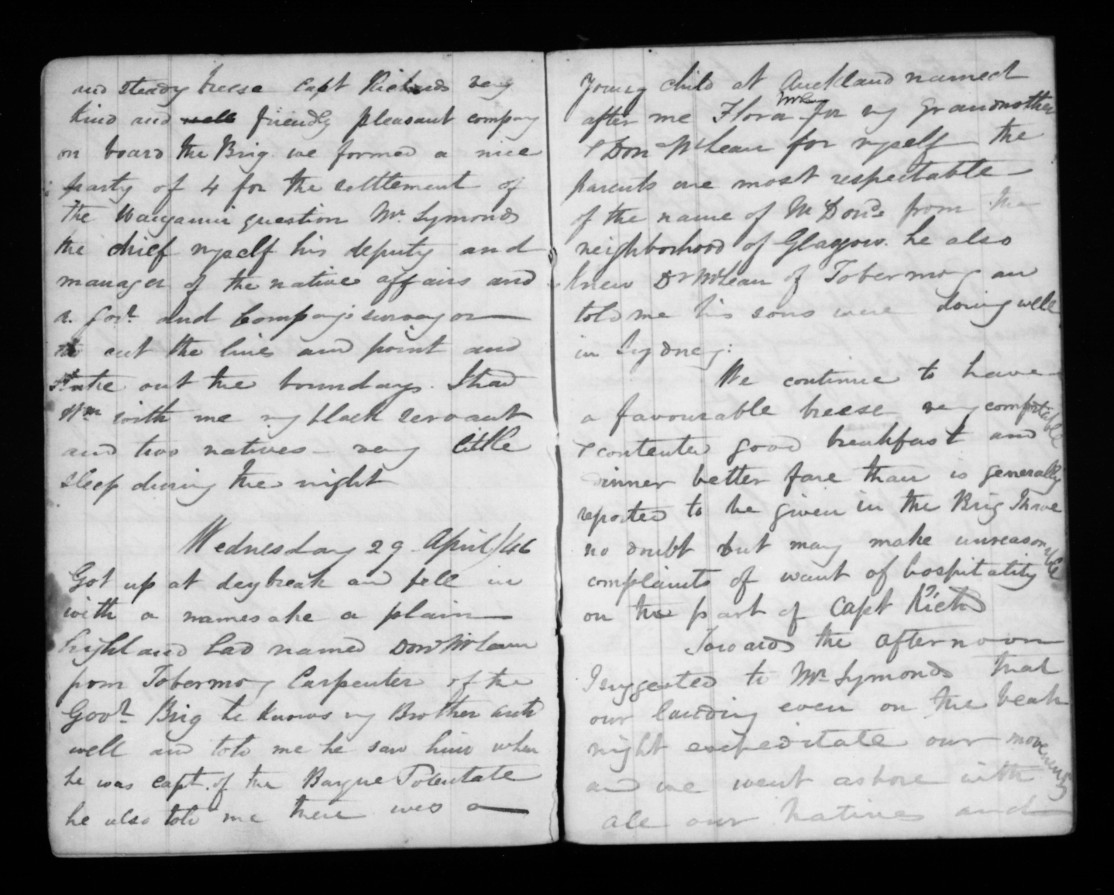 and steady breese Capt Richards very
kind and well friendly pleasant company
on board the Brig we formed a nice
party of 4 for the settlement of
the Wanganui question Mr. Symonds
the chief myself his deputy and
manager of the native affairs and
a Govt. and Company's surveyor
to cut the lines and point and
stake out the boundarys. I had
Wm with me my black servant
and two natives very little
sleep during the night
Wednesday 29 April/46
Got up at daybreak and fell in
with a namesake a plain
highland lad named Dond McLean
from Tobermory Carpenter of the
Govt. Brig he knows my Brother Archd
well and told me he saw him when
he was capt. of the Barque Potentate
he also told me there was a
young child at Auckland named
after me Flora McL for my Grandmother
& Dond McLean for myself the
parents are most respectable
of the name of McDond from the
neighborhood of Glasgow he also
knew Dr McLean of Tobermory and
told me his sons were doing well
in Sydney.
We continue to have
a favourable breese very comfortable
& contented good breakfast and
dinner better fare than is generally
reported to be given in the Brig I have
no doubt but many make unreasonable
complaints of want of hospitality
on the part of Capt Richds
Towards the afternoon
I suggested to Mr Symonds that
our landing even on the beach
might expeditate our movements
and we went ashore with
all our natives and